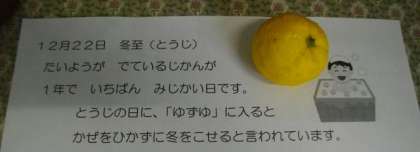 12月22日　冬至（とうじ）
たいようが　でているじかんが
1年で　いちばん　みじかい日です。
とうじの日に、「ゆずゆ」に入ると
かぜをひかずに冬をこせると言われています。